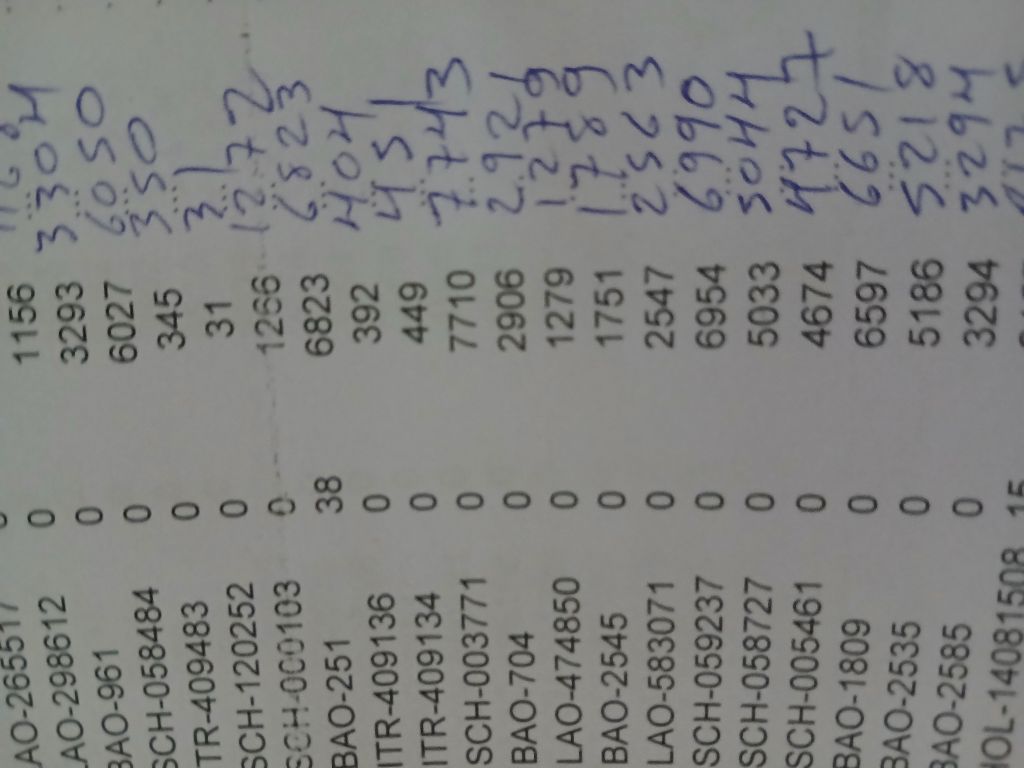 LAO-298612 0 1156
BAO-961 0 3293 3304
SCH-058484 0 6027 6050
ITR-409483 0 345 350
SCH-120252 0 31 31
SCH-000103 0 1266 1272
BAO-251 38 6823 6823
ITR-409136 0 392 404
ITR-409134 0 449 451
SCH-003771 0 7710 7743
BAO-704 0 2906 2921
LAO-474850 0 1279 1279
BAO-2545 0 1751 1789
LAO-583071 0 2547 2563
SCH-059237 0 6954 6990
SCH-058727 0 5033 5044
SCH-005461 0 4674 4727
BAO-1809 0 6597 6651
BAO-2535 0 5186 5218
BAO-2585 0 3294 3294
HOL-14081508 15